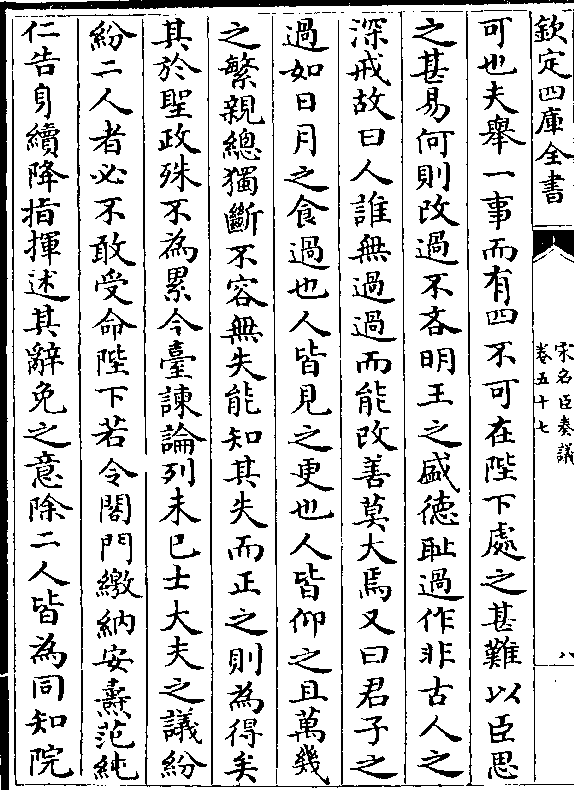 欽定四庫全書
宋名臣奏議
卷五十七
八
可也夫舉一事而有四不可在陛下處之甚難以臣思
之甚易何則改過不吝明王之盛德耻過作非古人之
深戒故曰人誰無過過而能改善莫大焉又曰君子之
過如日月之食過也人皆見之更也人皆仰之且萬幾
之繁親總獨斷不容無失能知其失而正之則為得矣
其於聖政殊不為累今臺諫論列未已士大夫之議紛
紛二人者必不敢受命陛下若令閤門繳納安燾范純
仁告身續降指揮述其辭免之意除二人皆為同知院